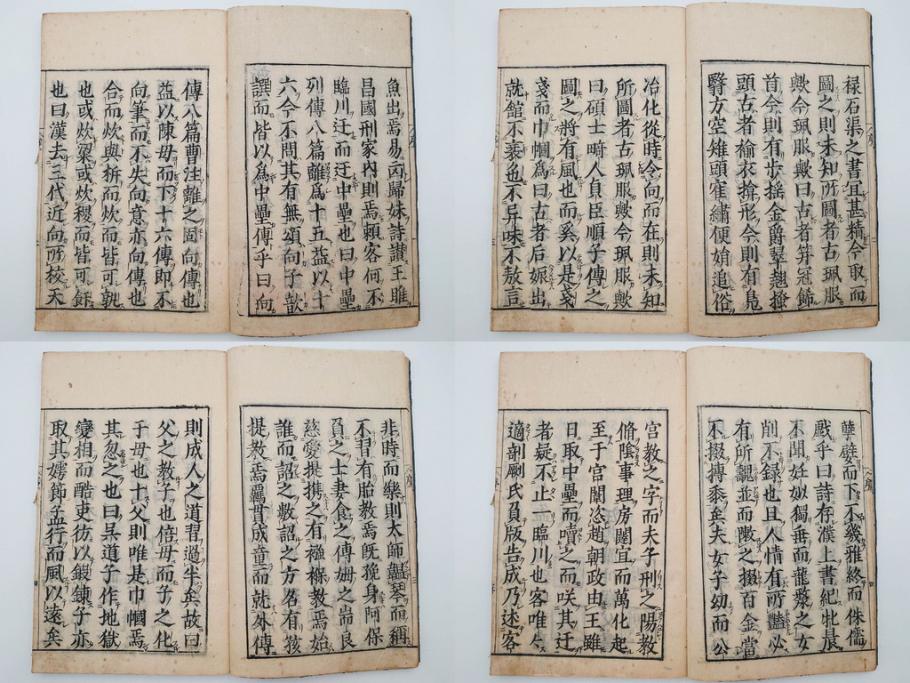 魚出焉易㐫歸妹詩讃王雎
昌國刑家内則焉頼客何不
臨川迂而迂中壘也曰中壘
列傳八篇離爲十五益以十
六今不問其有無頌向子歆
譔而皆以爲中壘傳乎曰向
傳八篇曹注離之固向傳也
益以陳母而下十六傳即不
向筆而不失向意亦向傳也
合而炊與析而炊而皆可
也或炊粱或炊稷而皆可
也曰漢去三代近向所校天
禄石渠之書宜甚精今取而
圖之則未知所圖者古珮服
歟今珮服歟曰古者笄冠歸
首今則有歩揺金爵翹
頭古者揄衣形今則有鳬
方空雉頭繡便追俗
冶化從時令向而在則未知
所圖者古珮服歟今珮服歟
曰碩士畸人貞臣順子傳之
圖之將有風也而奚以是戔
戔而巾幗爲曰古者后娠出
就館不衺色不异味不敖言
非時而樂則太師韞琴而稱
不習有胎教焉既身阿保
負之士妻食之傅姆之耑良
慈愛提携之有襁褓教焉始
誰而詔之敷詔之方名有孩
提教焉羈貫成童而就外傅
則成人之道習過半矣故曰
父之教子也倍母而子之化
于母也十父則唯是巾幗焉
其忽之也曰吴道子作地獄
變相而酷吏彷以鍛錬子亦
取其嫮飾孟行而風以遠矣
孽嬖而下不幾雅終而侏儒
戲乎曰詩存濮上書紀牝晨
不聞妊姒獨垂而龍漦之女
削不録也且人情有所豔必
有所並而陳之掇百金當
不搬摶黍矣夫女子幼而公
宫教之字而夫子刑之陽教
脩陰事理房闥宜而萬化起
至于宫闈恣趙朝政由王雖
日取中壘而讀之而咲其迂
者疑不止一臨川也客唯今
適剞劂氏負版告成乃述客